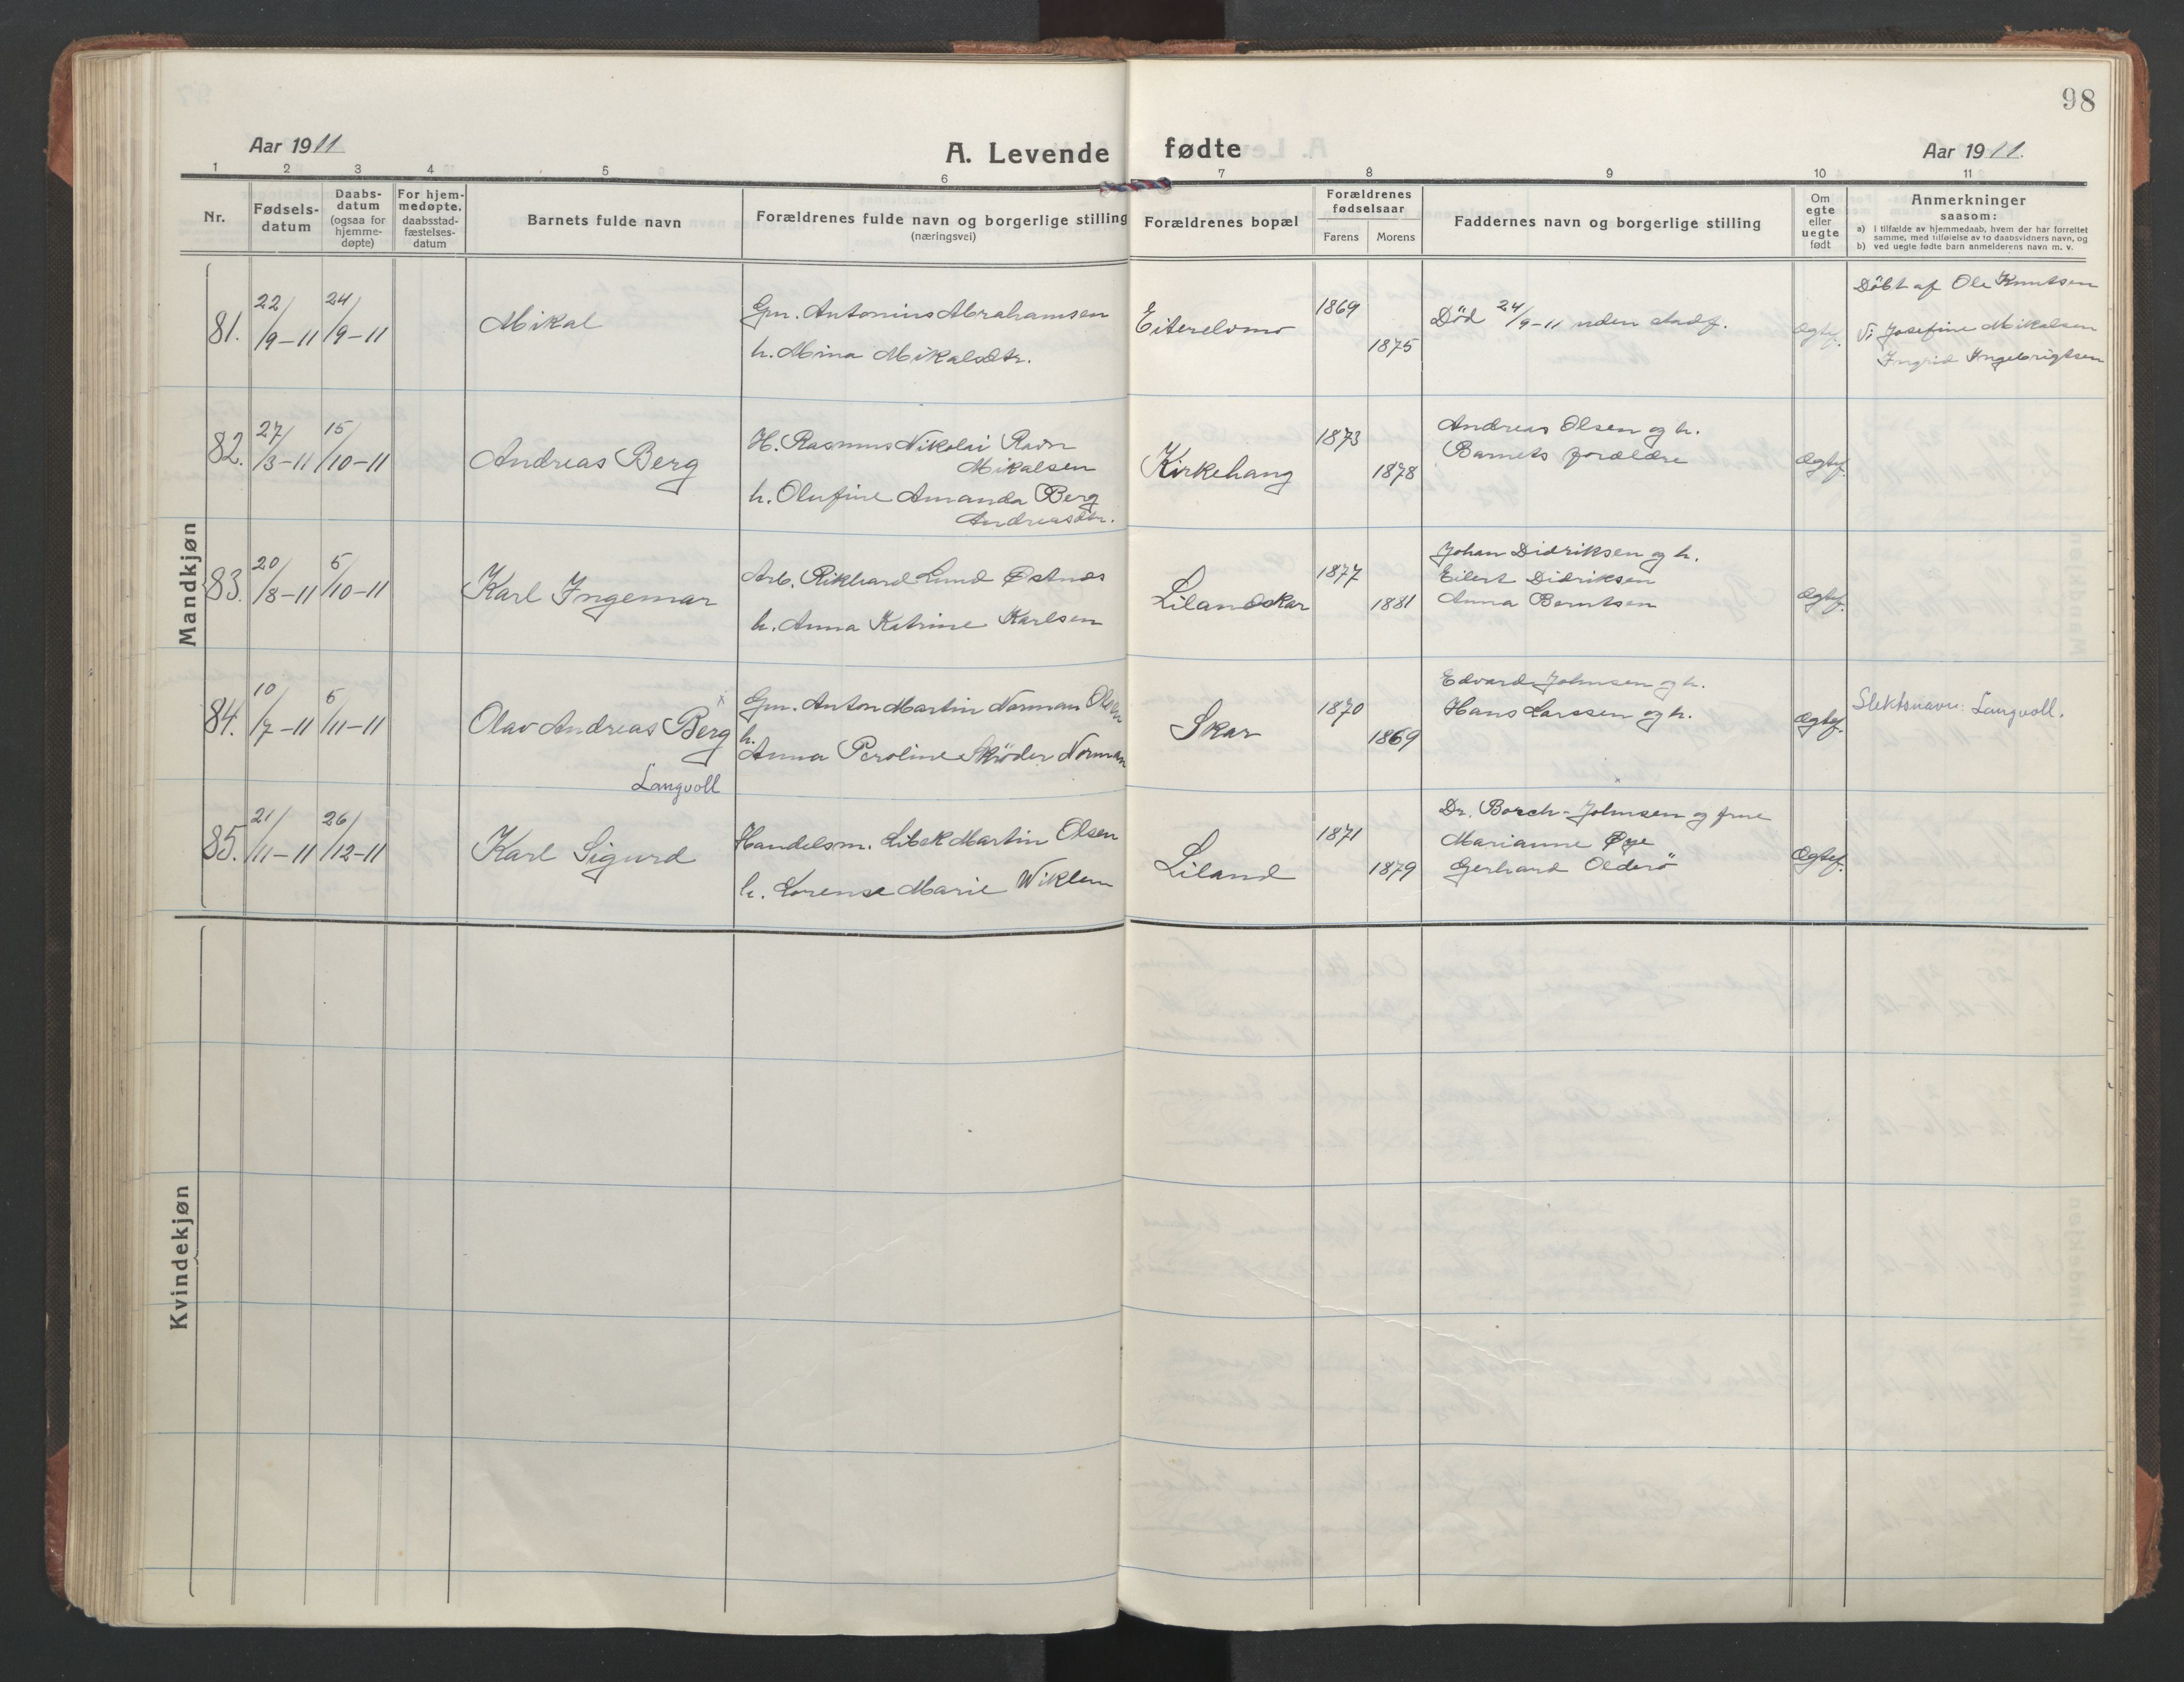 98
Aar 1911
A. Levende fødte
Aar 1911.
1 2 3 4 5 6 7 8 9 10 11
Nr.
Fødsels-
datum
Daabs-
datum
(ogsaa for
hjemme-
døpte)
For hjem-
medøpte,
daabsstad-
fæstelses-
datum
Barnets fulde navn
Forældrenes fulde navn og borgerlige stilling
(næringsvei)
Forældrenes bopæl
Forældrenes
fødselsaar
Farens Morens
Faddernes navn og borgerlige stilling
Om
egte
eller
uegte
født
Anmerkninger
saasom:
a) i tilfælde av hjemmedaab, hvem der har forrettet
samme, med tilføielse av to daabsvidners navn, og
b) ved uegte fødte barn anmelderens navn m. v.
Mandkjøn
81.
22/9-11
24/9-11
Mikal
Gm. Antonius Abrahamsen
h. Mina Mikalsdtr.
Eiterelvmo
1869
1875
Død 24/9-11 uden stadf.
Ægtef.
Döbt af Ole Knutsen
Vi Josefine Mikalsen
Ingrid Ingebrigtsen
82.
27/3-11
15/10-11
Andreas Berg
H. Rasmus Nikolai Ravn
Mikalsen
h. Olufine Amanda Berg
Andreasdtr.
Kirkehaug
1873
1878
Andreas Olsen og h.
Barnets forældre
Ægtef.
83.
20/8-11
5/10-11
Karl Ingemar
Arb. Rikhard Lund Østnes
h. Anna Katrine Karlsen
Lilandskar
1877
1881
Johan Didriksen og h.
Eilert Didriksen
Anna Berntsen
Ægtef.
84.
10/7-11
5/11-11
Olav Andreas Berg x
Langvoll
Gm. Anton Martin Norman Olsen
h.
Anna Peroline Skröder Norman
Skar
1870
1869
Edvard Johnsen og h.
Hans Larssen og h.
Ægtef.
Slektsnavn: Langvoll.
85.
21/11-11
26/12-11
Karl Sigurd
Handelsm. Libek Martin Olsen
h. Lorense Marie Wiklem
Liland
1871
1879
Dr. Borch-Johnsen og frue
Marianne Øye
Gerhard Olderö
Ægtef.
Kvindekjøn